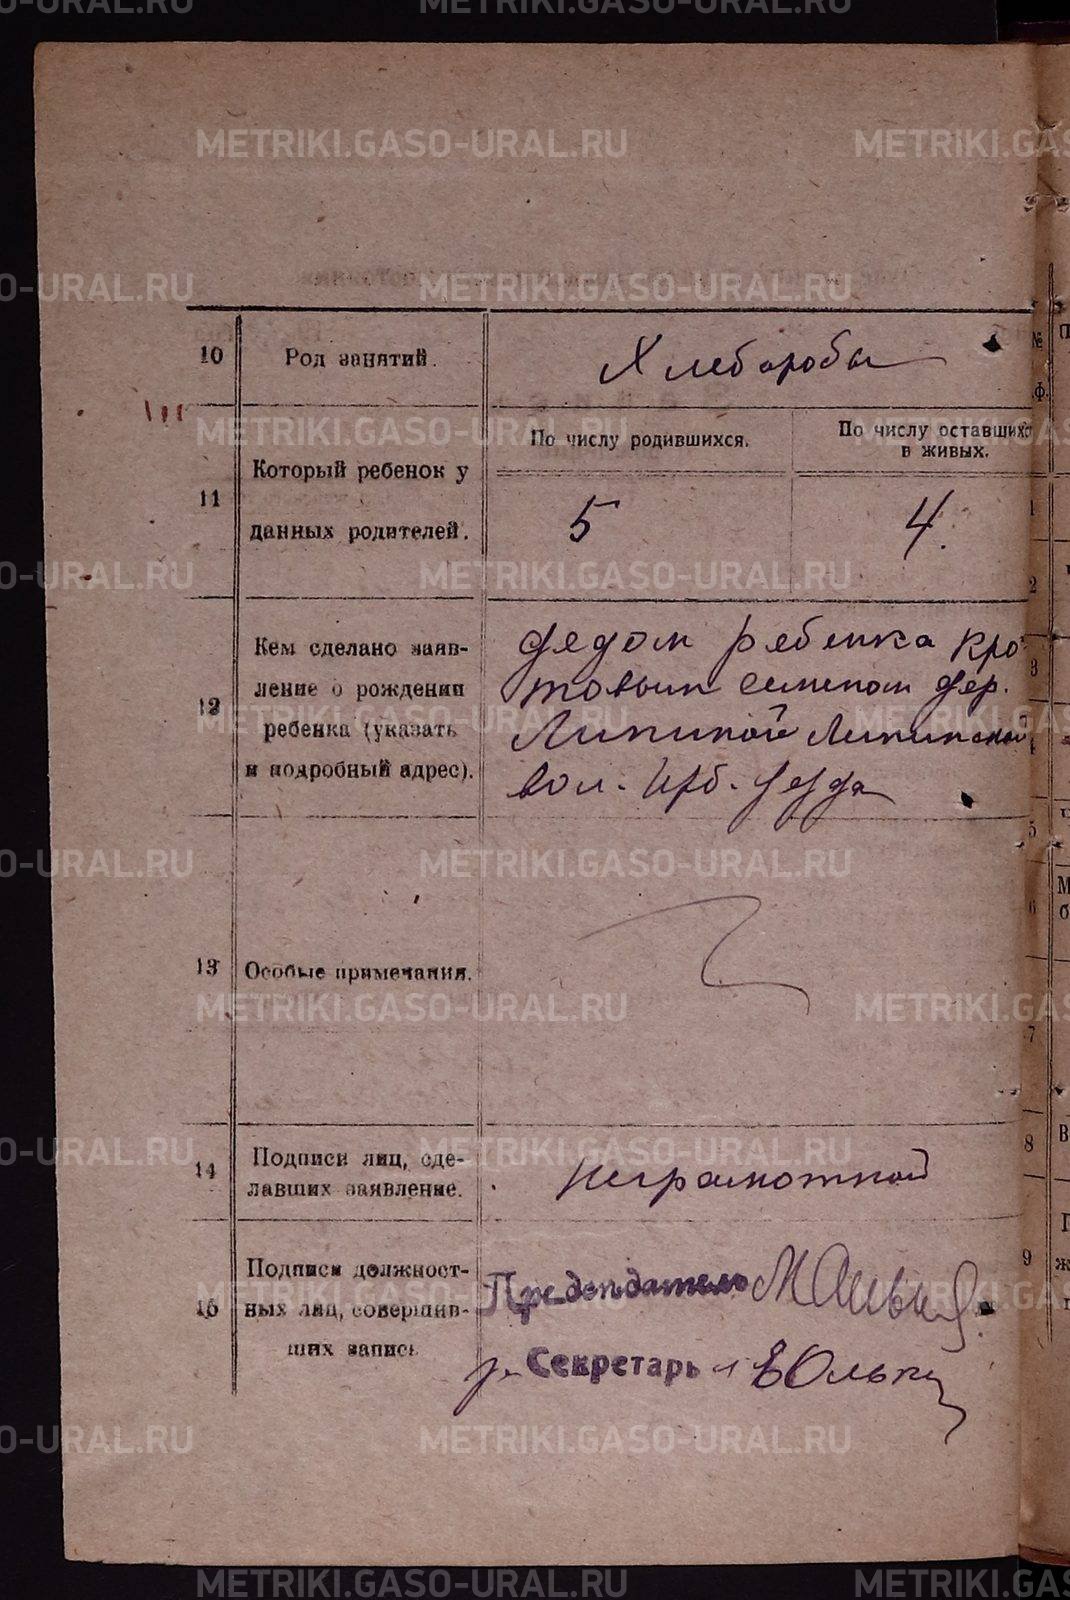 METRIKI.GASO-URAL.RU
10 Род занятий. Хлеборобы
11 Который ребенок у данных родителей.
По числу родившихся.
По числу оставшихся в живых.
5
4.
12 Кем сделано заяв-
ление о рождении
ребенка (указать
и подробный адрес).
дедом ребенка Кро-
товым Семеном дер.
Липиной Липинской
вол. Ирб. уезда
13 Особые примечания.
14 Подписи лиц, сде-
лавших заявление.
Неграмотной
15 Подписи должност-
ных лиц, совершив-
ших запись
Председатель
Секретарь
№
1
2
3
4
5
6
7
8
9